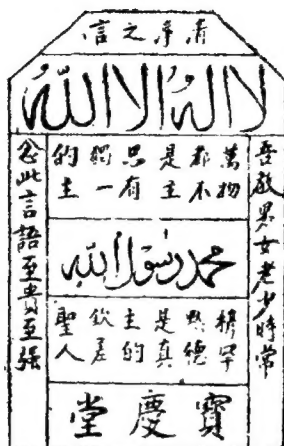 清淨之言
لا اله الا الله
吾教男女老少時常
萬物
都不
是主
有
獨一
的主
محمد رسول الله
穆罕
默德
是真
主的
欽差
聖人
念此言語至貴至强
寶慶堂